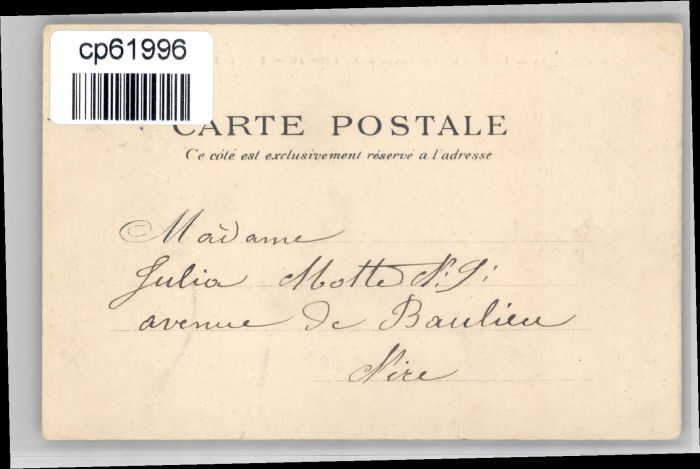 cp61996
CARTE POSTALE
Ce côté est exclusivement réservé a l'adresse
Madame
Julia Motte N: 9:
avenue De Baulieu